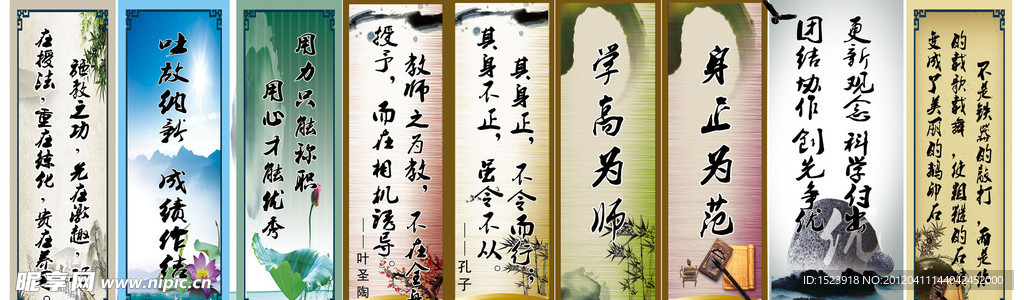 强教之功，先在激趣，
在授法，重在练化，贵在养
吐故纳新 成绩作结
用力只能称职
用心才能优秀
教师之为教，不在全
授予，而在相机诱导。
——叶圣陶
其身正，不令而行；
其身不正，虽令不从。
——孔子
学高为师
身正为范
更新观念 科学付出
团结协作 创先争优
优
不是铁器的敲打，而是
的载歌载舞，使粗糙的石
变成了美丽的鹅卵石
昵享网 www.nipic.cn
ID:1523918 NO:20120411144042452000